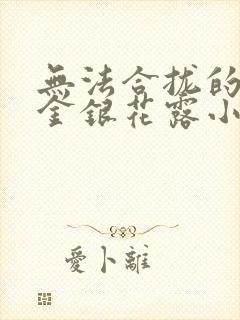 無法合拢的
金銀花露小
愛卜離